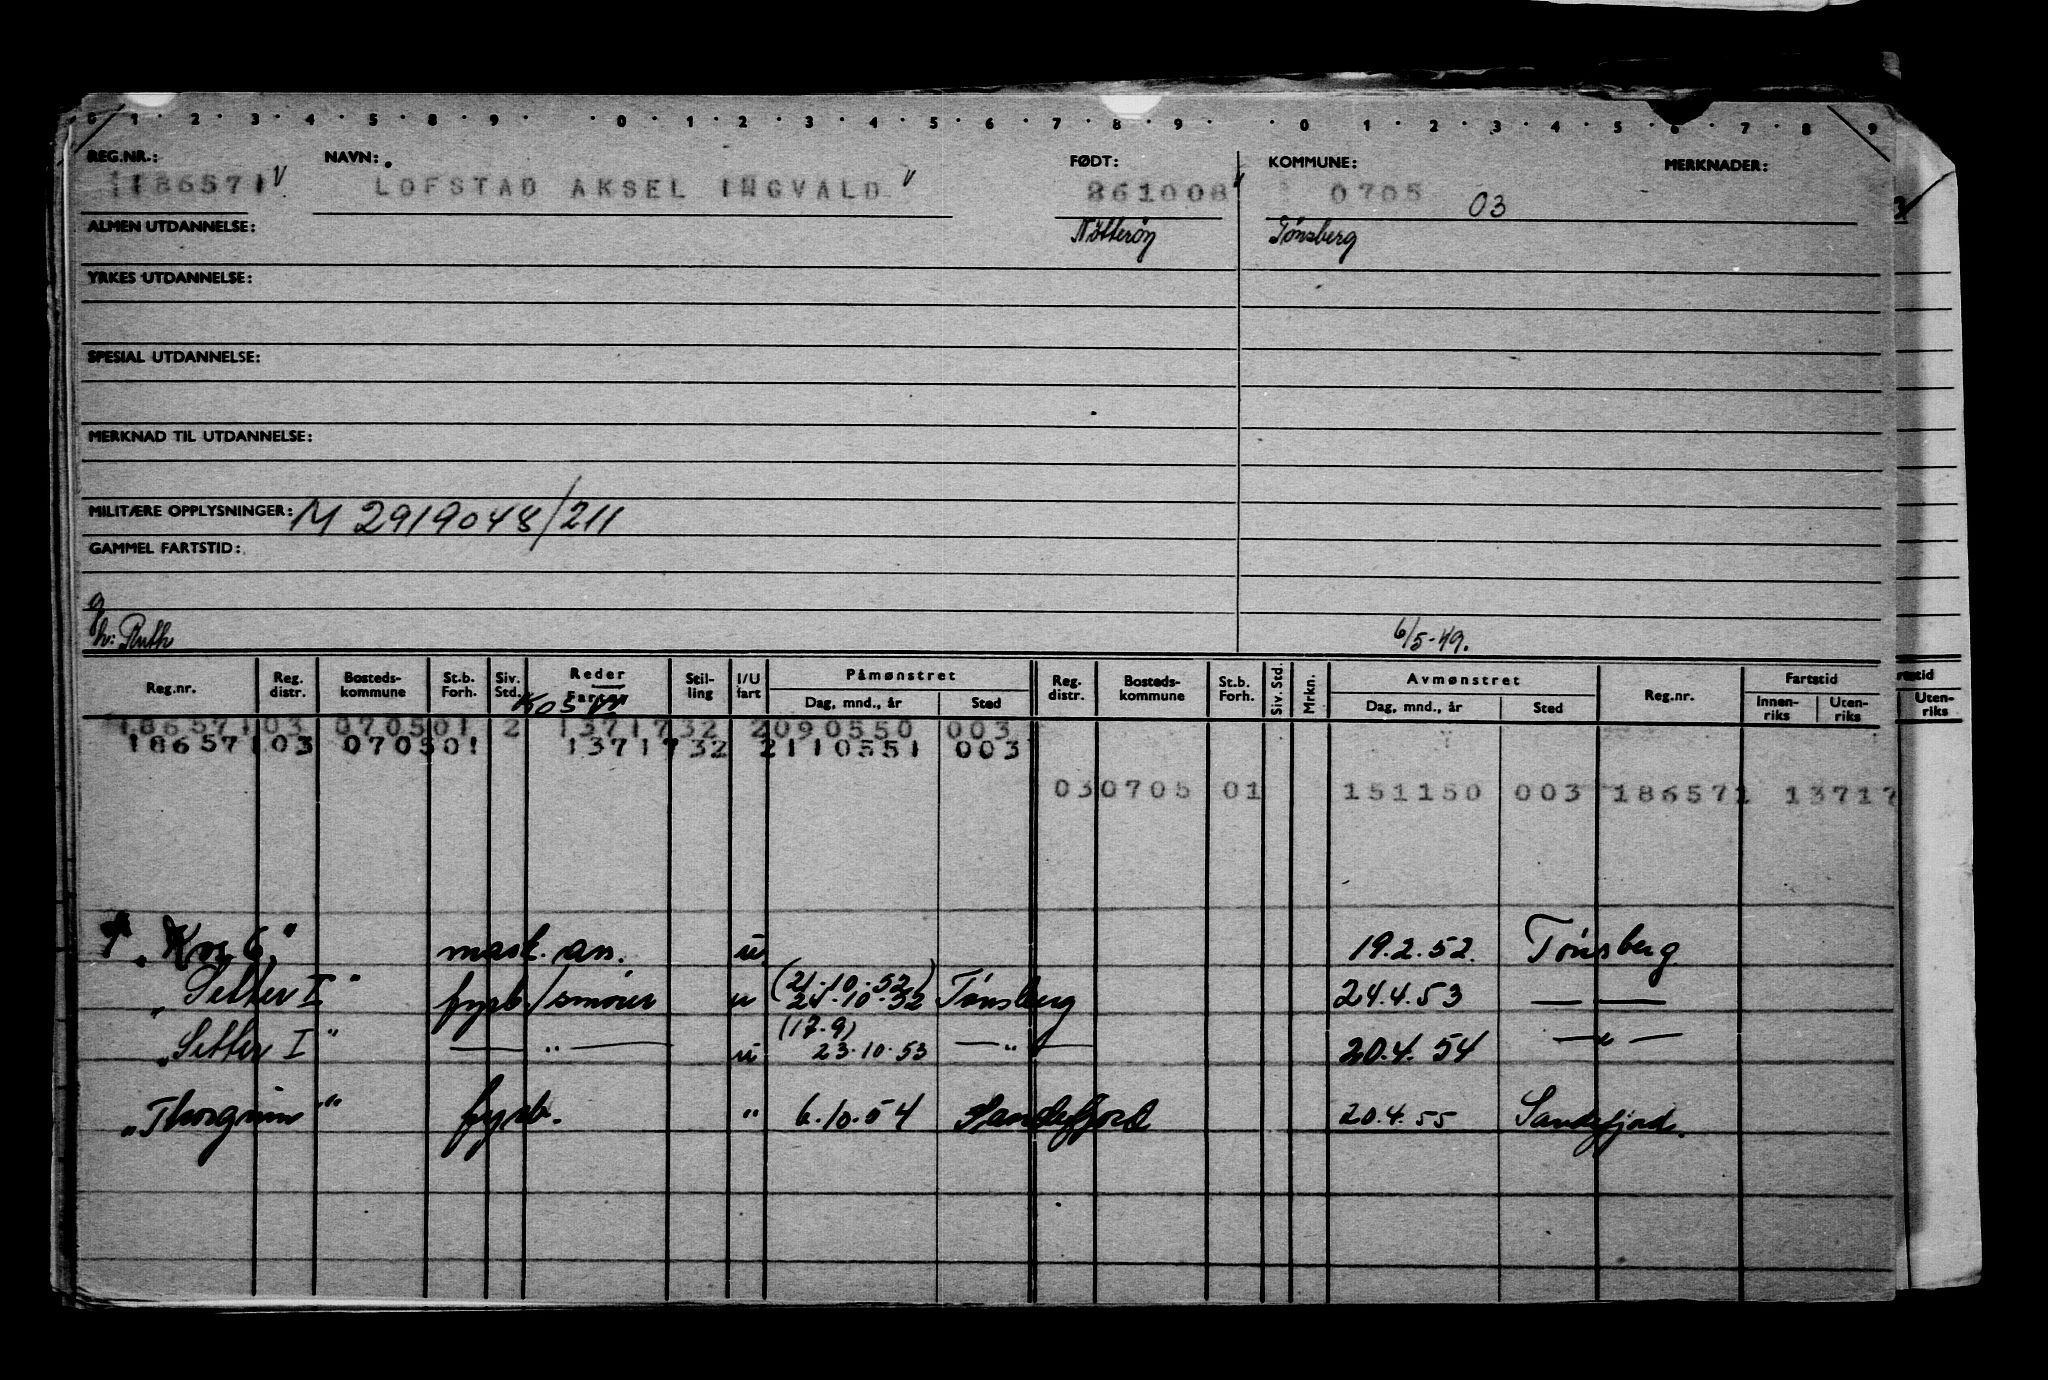 0 1 2 3 4 5 8 9 0 1 2 3 4 5 6 7 8 9 0 1 2 3 4 5 6 7 8 9
REG.NR.: NAVN: FØDT: KOMMUNE: MERKNADER:
186571 LOFSTAD AKSEL INGVALD 261008 0705 03
ALMEN UTDANNELSE: Nötteröy Tönsberg
YRKES UTDANNELSE:
SPESIAL UTDANNELSE:
MERKNAD TIL UTDANNELSE:
MILITÆRE OPPLYSNINGER: M 2919048/211
GAMMEL FARTSTID:
g
h: Ruth 6/5-49.
Reg.nr. Reg. distr. Bosteds-kommune St.b. Forh. Siv. Std. Reder Fartøy Stil-ling I/U fart Påmønstret Dag, mnd., år Sted Reg. distr. Bosteds-kommune St.b. Forh. Siv. Std. Mrkn. Avmønstret Dag, mnd., år Sted Reg.nr. Fartstid Innen-riks Uten-riks
186571 03 0705 01 2 13717 32 2 090550 003
186571 03 0705 01 13717 32 2 110551 003
03 0705 01 151150 003 186571 13717
"Kos 6" mask. ass. u 19.2.52. Tönsberg
"Setter I" fyrb./smörer u (21.10.52) 24.10.52 Tönsberg 24.4.53 — —
"Setter I" — " — u (17.9) 23.10.53 — " — 20.4.54 — " —
"Thorgrim" fyrb. " 6.10.54 Sandefjord 20.4.55 Sandefjord.